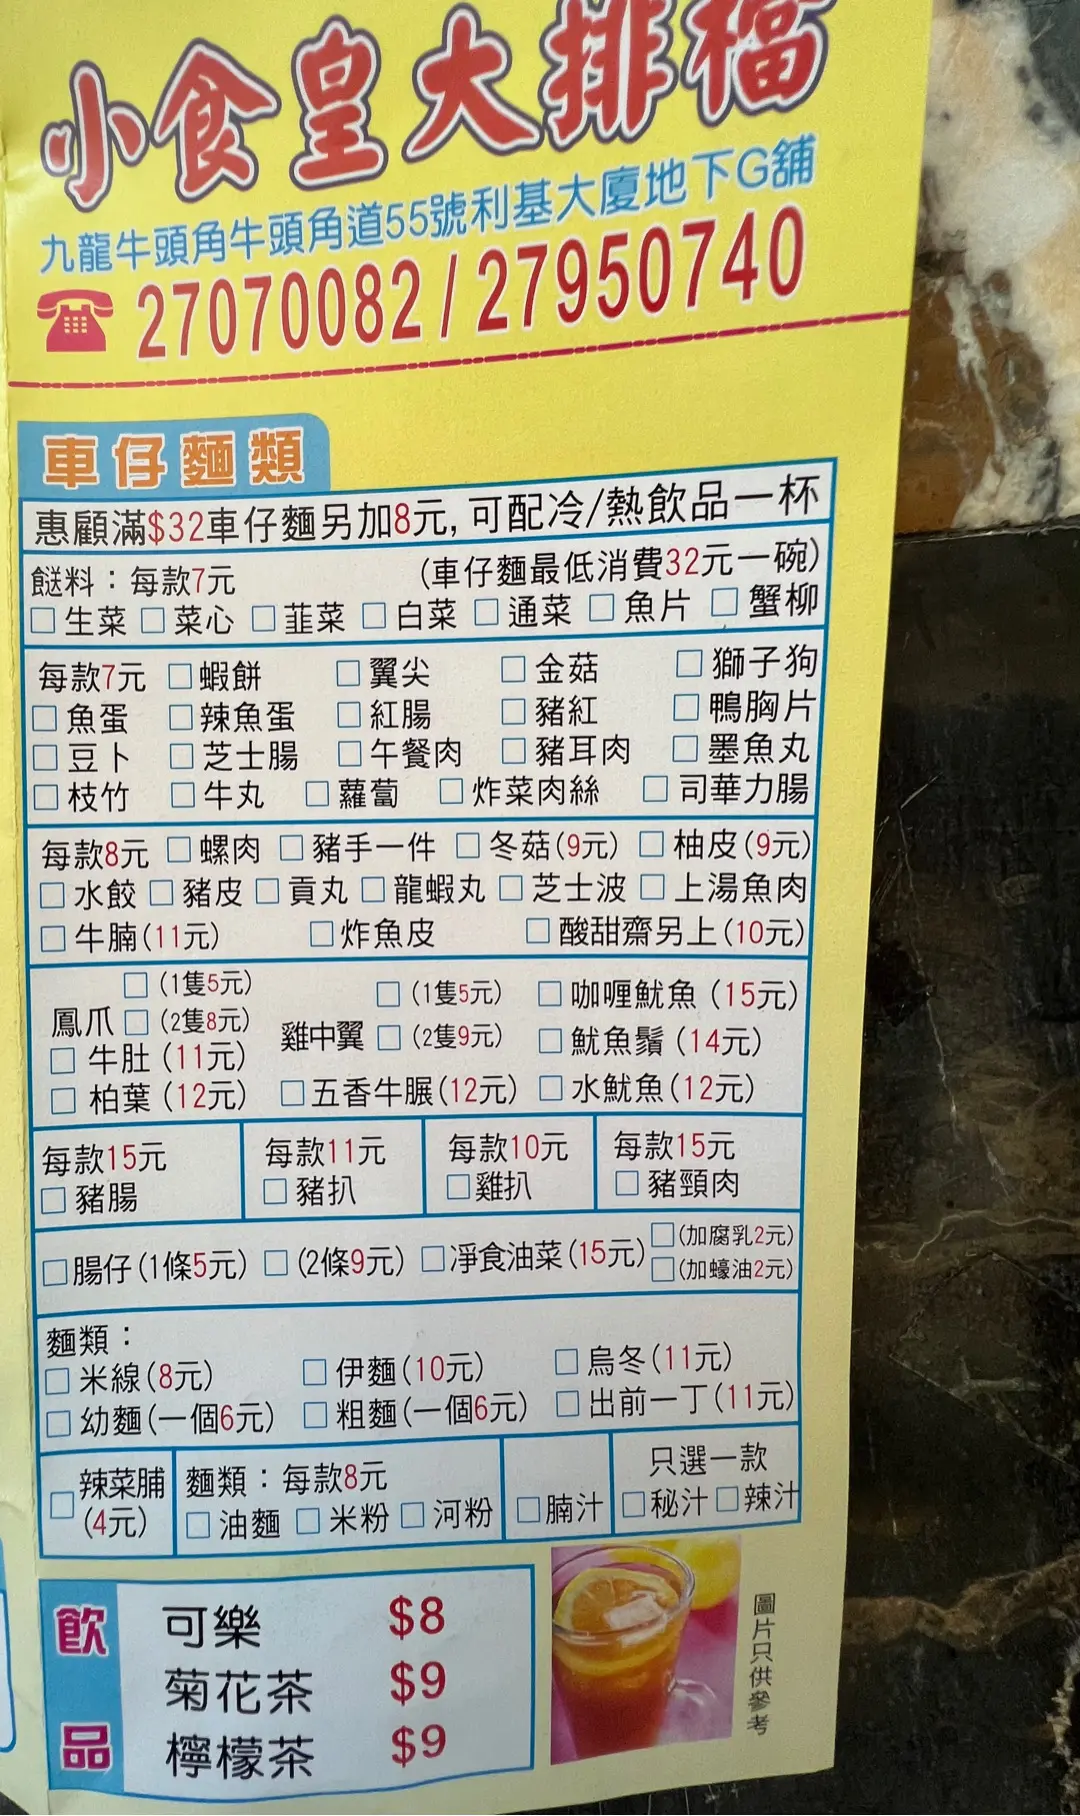 小食皇大排檔
九龍牛頭角牛頭角道55號利基大廈地下G舖
27070082/27950740
車仔麵類
惠顧滿$32車仔麵另加8元,可配冷/熱飲品一杯
餸料：每款7元 (車仔麵最低消費32元一碗)
生菜 菜心 韮菜 白菜 通菜 魚片 蟹柳
每款7元 蝦餅 翼尖 金菇 獅子狗
魚蛋 辣魚蛋 紅腸 豬紅 鴨胸片
豆卜 芝士腸 午餐肉 豬耳肉 墨魚丸
枝竹 牛丸 蘿蔔 炸菜肉絲 司華力腸
每款8元 螺肉 豬手一件 冬菇(9元) 柚皮(9元)
水餃 豬皮 貢丸 龍蝦丸 芝士波 上湯魚肉
牛腩(11元) 炸魚皮 酸甜齋另上(10元)
鳳爪 (1隻5元)
(2隻8元)
牛肚(11元)
柏葉(12元)
雞中翼 (1隻5元)
(2隻9元)
五香牛𦟌(12元)
咖喱魷魚(15元)
魷魚鬚(14元)
水魷魚(12元)
每款15元
豬腸
每款11元
豬扒
每款10元
雞扒
每款15元
豬頸肉
腸仔(1條5元) (2條9元) 凈食油菜(15元) (加腐乳2元)
(加蠔油2元)
麵類：
米線(8元) 伊麵(10元) 烏冬(11元)
幼麵(一個6元) 粗麵(一個6元) 出前一丁(11元)
辣菜脯
(4元)
麵類：每款8元
油麵 米粉 河粉
腩汁
只選一款
秘汁 辣汁
飲品
可樂 $8
菊花茶 $9
檸檬茶 $9
圖片只供參考